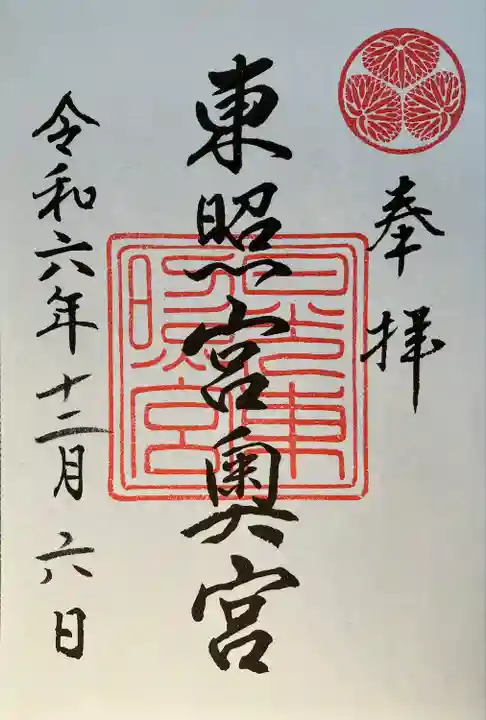 奉拝
日光東照宮
東照宮奥宮
令和六年十二月六日